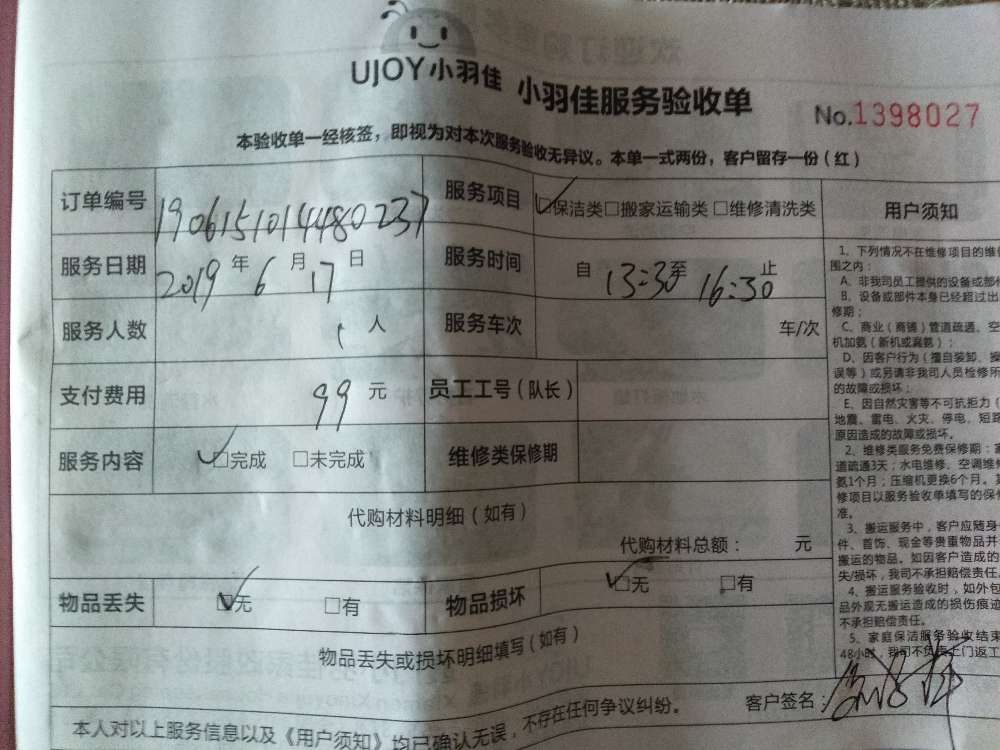 UJOY小羽佳 小羽佳服务验收单
No.1398027
本验收单一经核签，即视为对本次服务验收无异议。本单一式两份，客户留存一份（红）
订单编号 1906151014480237 服务项目 保洁类 □搬家运输类 □维修清洗类
服务日期 2019年6月17日 服务时间 自13:30至16:30止
服务人数 1人 服务车次 车/次
支付费用 99元 员工工号（队长）
服务内容 □完成 □未完成 维修类保修期
代购材料明细（如有）
代购材料总额： 元
物品丢失 □无 □有 物品损坏 □无 □有
物品丢失或损坏明细填写（如有）
客户签名：
本人对以上服务信息以及《用户须知》均已确认无误，不存在任何争议纠纷。
用户须知
1、下列情况不在维修项目的维
围之内：
A、非我司员工提供的设备或部
B、设备或部件本身已经超过出
修期；
C、商业（商铺）管道疏通、空
机加氨（新机或漏氨）；
D、因客户行为（擅自装卸、操
误等）或另请非我司人员检修所
的故障或损坏；
E、因自然灾害等不可抗拒力（
地震、雷电、火灾、停电、短路
原因造成的故障或损坏。
2、维修类服务免费保修期：
道疏通3天；水电维修、空调维
氨1个月；压缩机更换6个月。
修项目以服务验收单填写的保
准。
3、搬运服务中，客户应随身
件、首饰、现金等贵重物品并
搬运的物品。如因客户造成的
失/损坏，我司不承担赔偿责任。
4、搬运服务验收时，如外包
品外观无搬运造成的损伤痕迹
不承担赔偿责任。
5、家庭保洁服务验收结束
48小时，我司不负责上门返工